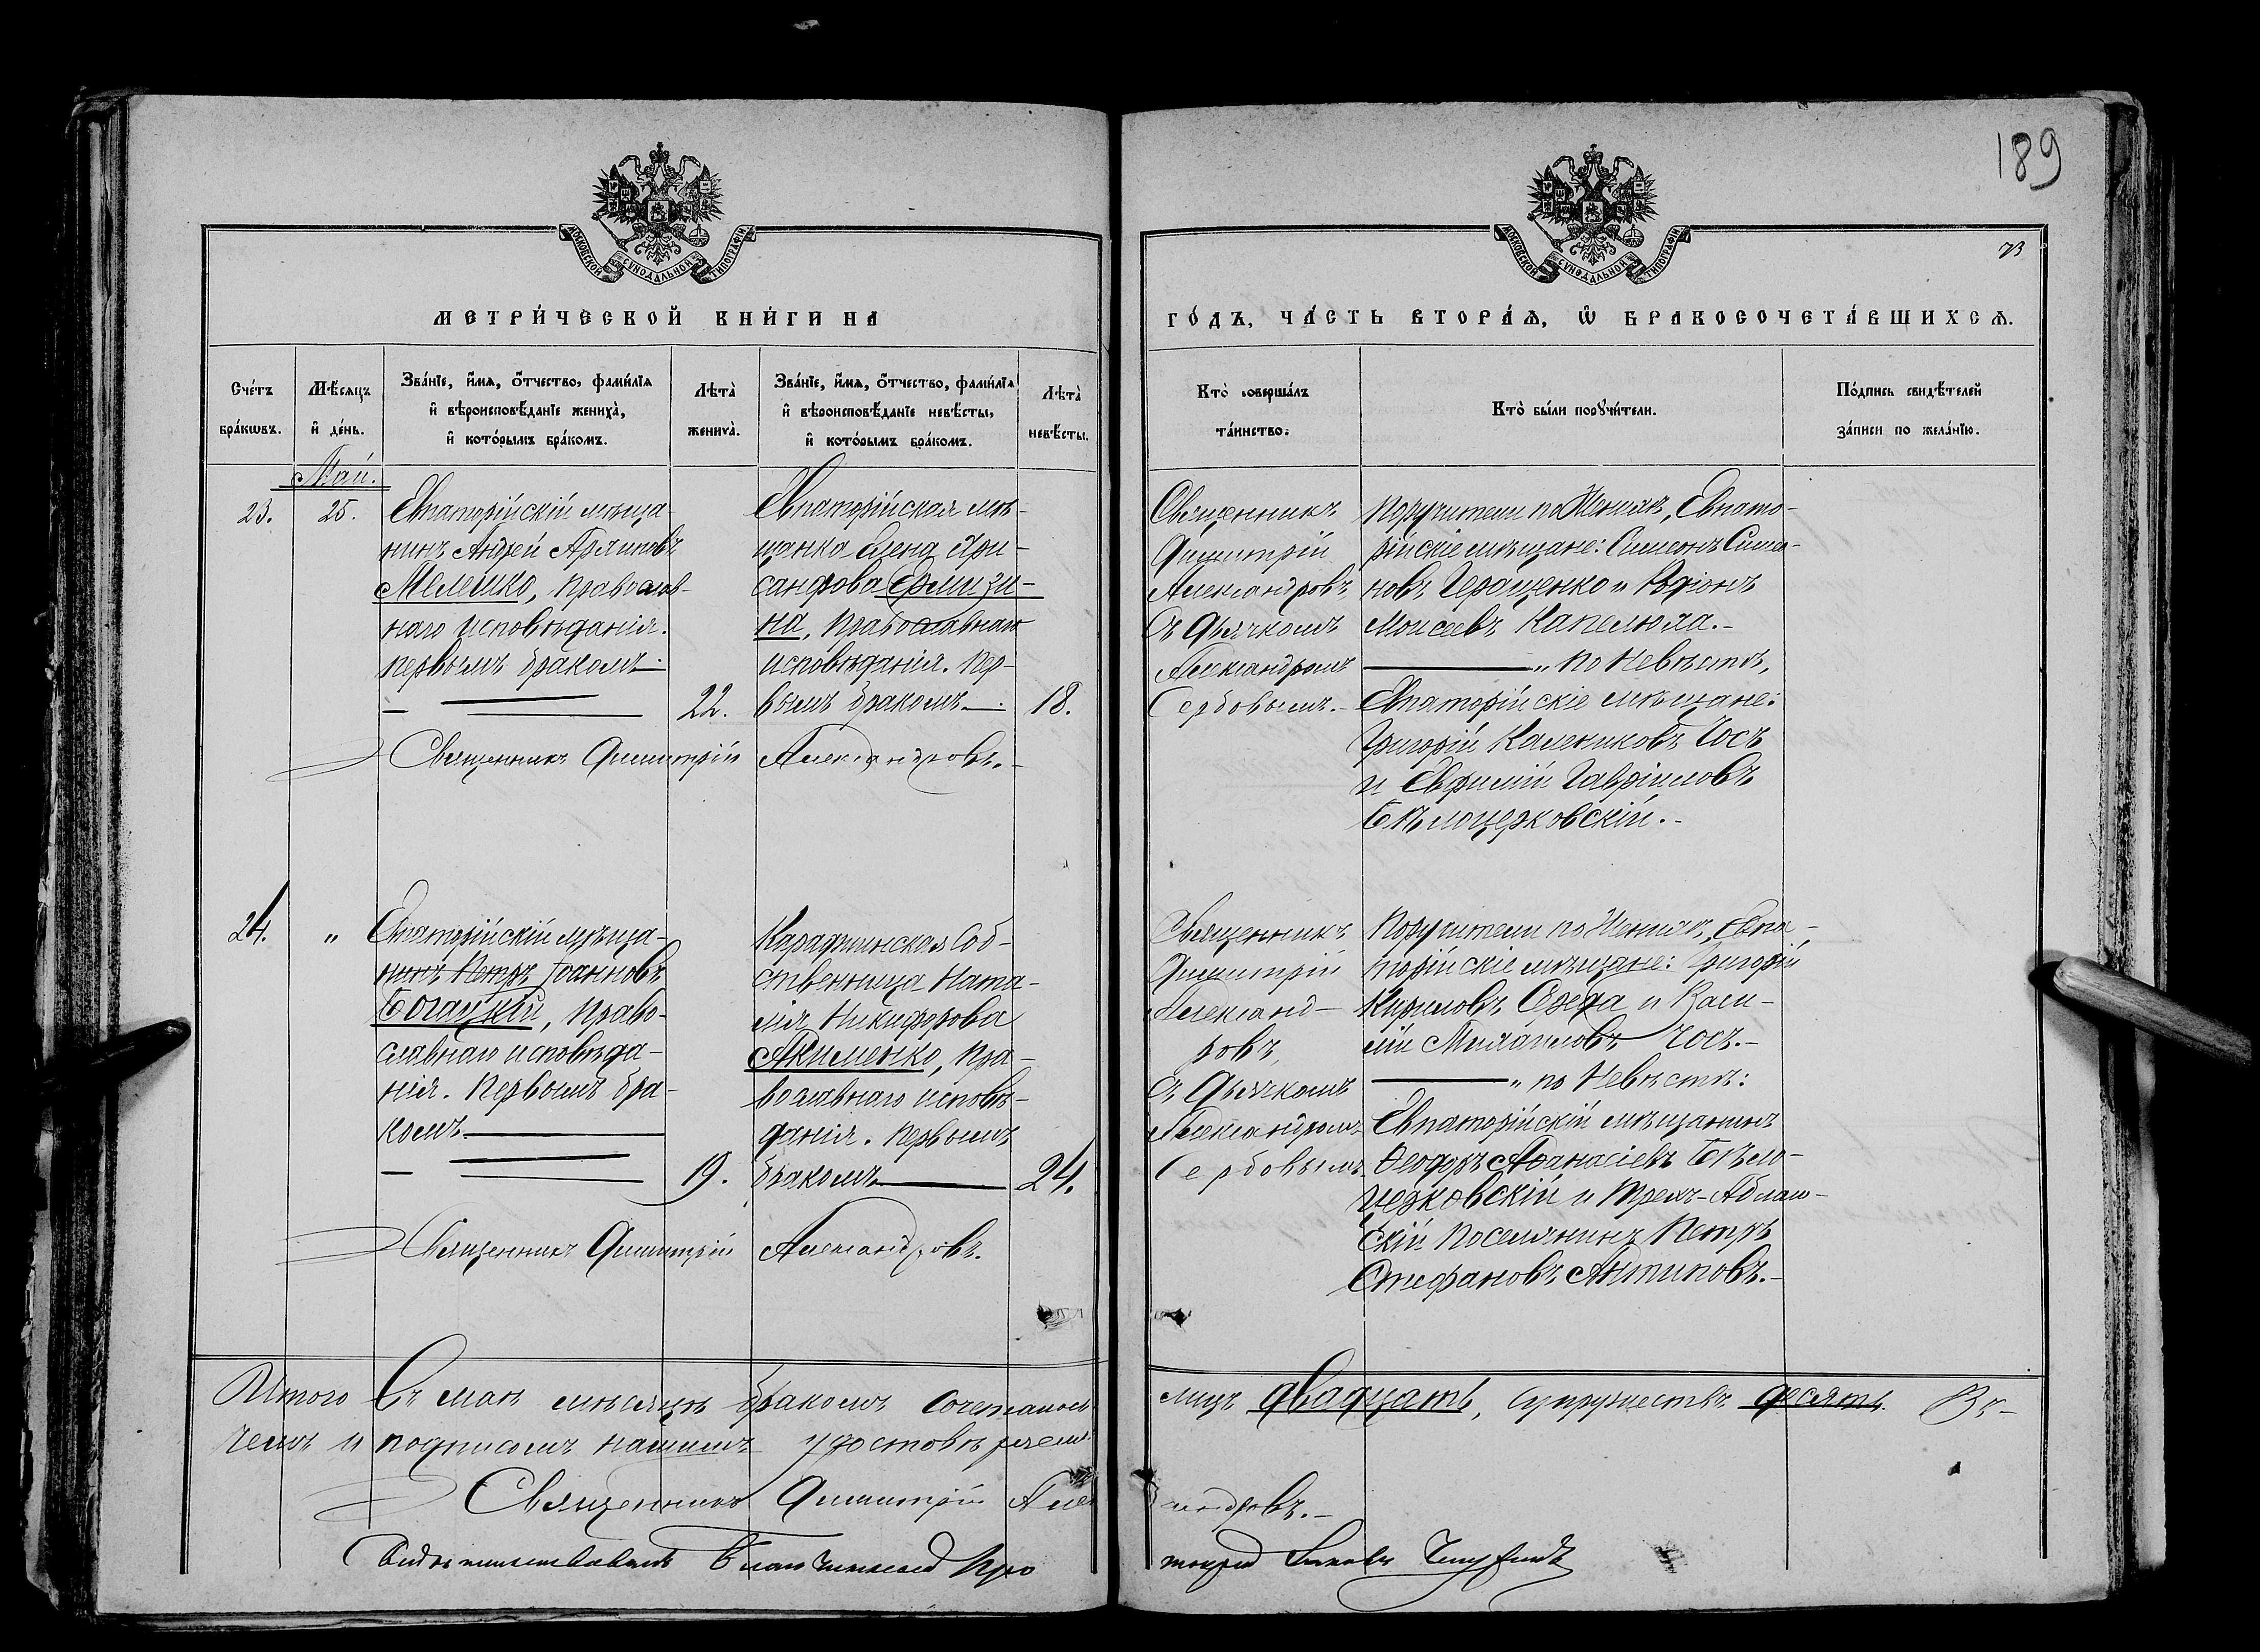 189
73
МОСКОВСКОЙ СѴНОДАЛЬНОЙ ТИПОГРАФІИ
МОСКОВСКОЙ СѴНОДАЛЬНОЙ ТИПОГРАФІИ
МЕТРИ́ЧЕСКОЙ КНИ́ГИ НА
ГО́ДЪ, ЧА́СТЬ ВТОРА́Ѧ, Ѡ҆ БРАКОСОЧЕТА́ВШИХСѦ.
Сче́тъ бра́кѡвъ.
Мѣ́сѧцъ и҆ де́нь.
Зва́нїе, и҆́мѧ, ѻ҆́тчество, фами́лїѧ
и҆ вѣроисповѣ́данїе жениха̀,
и҆ кото́рымъ бра́комъ.
Лѣта̀ жениха̀.
Зва́нїе, и҆́мѧ, ѻ҆́тчество, фами́лїѧ
и҆ вѣроисповѣ́данїе невѣ́сты,
и҆ кото́рымъ бра́комъ.
Лѣта̀ невѣ́сты.
Кто̀ соверша́лъ
та́инство.
Кто̀ бы́ли порꙋчи́тели.
По́дпись свидѣ́телей
за́писи по жела́нїю.
Май.
23.
25.
Евпаторійскій мѣща-
нинъ Андрей Архиповъ
Мелешко, православ-
наго исповѣданія.
первымъ бракомъ.
22.
Евпаторійская мѣ-
щанка Елена Хри-
санфова Ермизи-
на, православнаго
исповѣданія. пер-
вымъ бракомъ.
18.
Священникъ Димитрій Александровъ.
Священникъ
Димитрій
Александровъ
Съ Дьячкомъ
Александромъ
Сербовымъ.
Поручители по Женихѣ, Евпато-
рійскіе мѣщане: Симеонъ Симео-
новъ Геращенко и Родіонъ
Моисеевъ Капелюха.
" по Невѣстѣ,
Евпаторійскіе мѣщане:
Григорій Калениковъ Чосъ
и Евфимій Гавріиловъ
Бѣлоцерковскій.
24.
"
Евпаторійскій мѣща-
нинъ Петръ Іоанновъ
Богацкій, право-
славнаго исповѣда-
нія. Первымъ бра-
комъ
19.
Караджинская Соб-
ственница Ната-
лія Никифорова
Акименко, пра-
вославнаго исповѣ-
данія. первымъ
бракомъ
24.
Священникъ Димитрій Александровъ.
Священникъ
Димитрій
Александ-
ровъ,
Съ Дьячкомъ
Александромъ
Сербовымъ.
Поручители по Женихѣ, Евпа-
торійскіе мѣщане: Григорій
Кириловъ Середа и Васи-
лій Михаиловъ Чосъ.
" по Невѣстѣ:
Евпаторійскій мѣщанинъ
Ѳеодоръ Аѳанасіевъ Бѣло-
церковскій и Трехъ-Аблам-
скій Поселянинъ Петръ
Стефановъ Антиповъ.
Итого Въ маѣ мѣсяцѣ бракомъ сочеталось лицъ двадцать, супружествъ десять. Въ
чемъ и подписомъ нашимъ удостовѣряемъ
Священникъ Димитрій Александровъ.
Свидѣтельствовалъ Благочинный Протоіерей Іаковъ